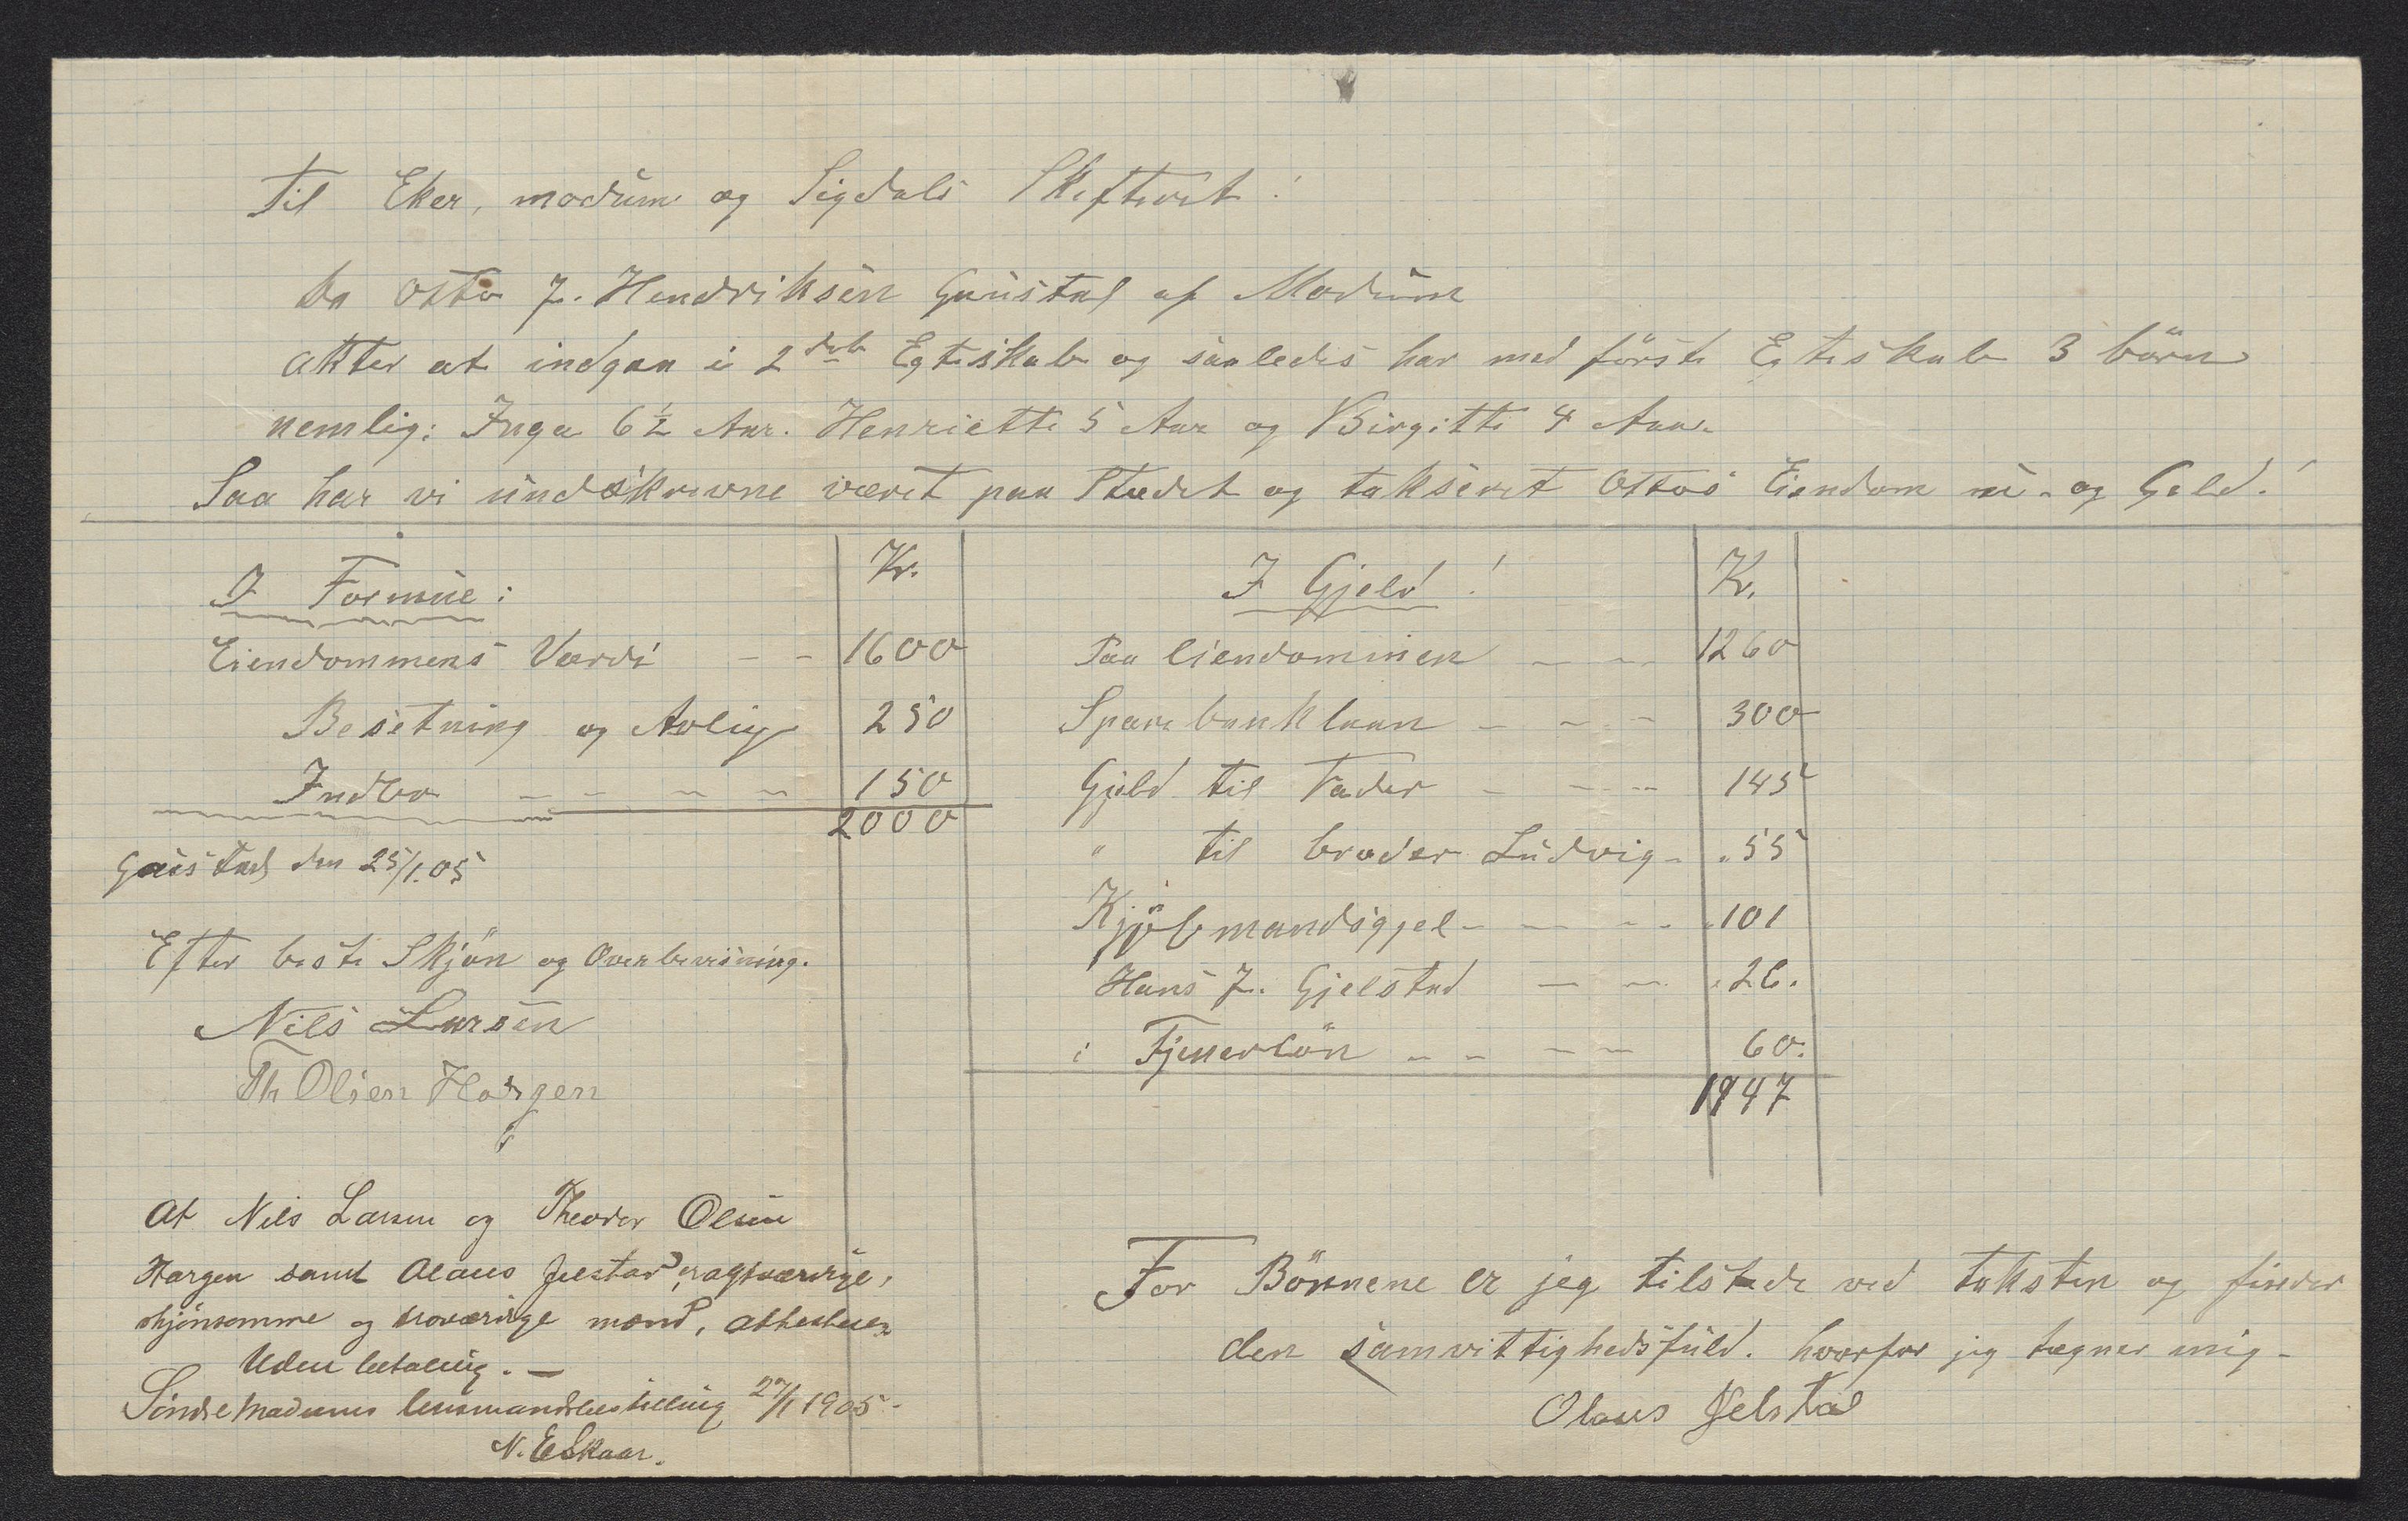 Til Eker, modum og Sigdals Skifteret!
Da Otto J. Hendriksen Gaustad af Modum
akter at indgaa i 2det Egteskab og saaledes har med förste Egteskab 3 börn
nemlig: Inga 6½ Aar. Henriette 5 Aar og Birgitte 4 Aar.
Saa har vi undskrevne været paa Stedet og takseret Ottos Eiendom og Geld!
I Formue:
Kr.
Eiendommens Værdi - - 1600
Besetning og Avling 250
Indbo - - - - 150
2000
Gaustad den 25/1.05
Efter beste Skjön og Overbevisning.
Nils Larsen
Th Olsen Horgen
I Gjeld!
Kr.
Paa eiendommen - - - 1260
Sparebanklaan - - - 300
Gjeld til Fader - - - 145
" til broder Ludvig - 55
Kjöbmandsgjel - - - - 101
Hans J. Gjelstad - - 26.
i Tjenerlön - - - - 60.
1947
At Nils Larsen og Theodor Olsen
Horgen samt Olaus Jelstad er agtværdige,
skjönsomme og troværdige mænd, attesteres
Uden betaling. —
Söndre Modums lensmandsbestilling 27/1 1905 -
N. E Skaar.
For Börnene er jeg tilstede ved taksten og finder
den samvittighedsfuld. hvorfor jeg tegner mig -
Olaus Jelstad